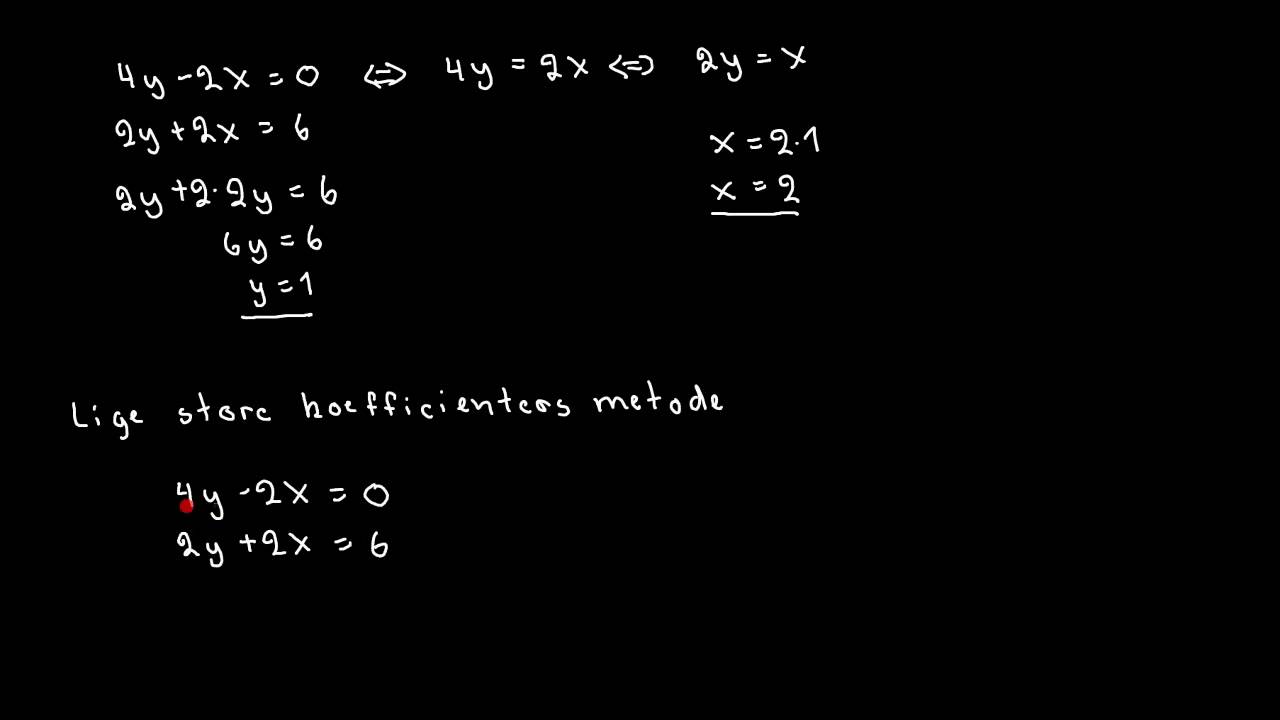 4y - 2x = 0 ⇔ 4y = 2x ⇔ 2y = x
2y + 2x = 6
x = 2·1
2y + 2·2y = 6
x = 2
6y = 6
y = 1
Lige store koefficienters metode
4y - 2x = 0
2y + 2x = 6